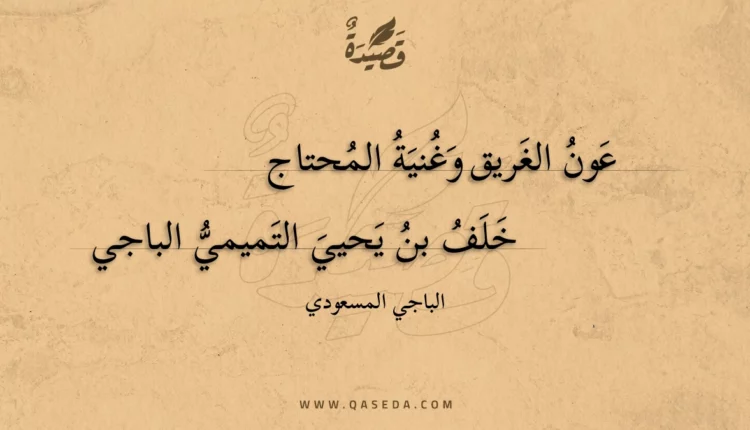 قَصِيدَةٌ
عَونُ الغَريق وَغُنيَةُ المُحتاج
خَلَفُ بنُ يَحييَ التَميميُّ الباجي
الباجي المسعودي
WWW.QASEDA.COM